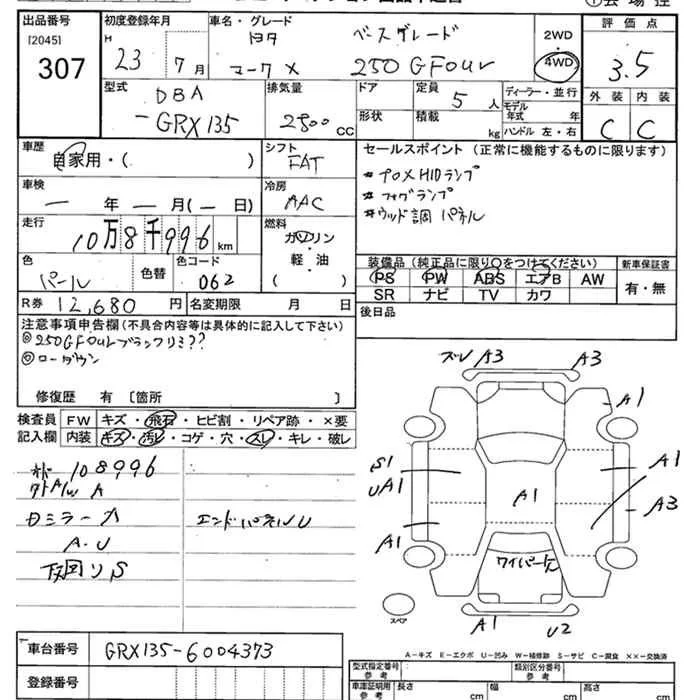 出品番号
[2045]
307
初度登録年月
H 23 7月
車名・グレード
トヨタ ベースグレード
マークX 250GFour
2WD
4WD
評価点
3.5
外装 内装
C C
型式
DBA
-GRX135
排気量
2500cc
ドア
形状
定員 5人
積載 kg
ディーラー・並行
モデル年式 年
ハンドル 左・右
車歴
自家用・( )
シフト
FAT
セールスポイント(正常に機能するものに限ります)
*プロX HIDランプ
*フォグランプ
*ウッド調パネル
車検
ー年ー月(ー日)
冷房
AAC
走行
10万8千996km
燃料
ガソリン
軽・油
( )
色
パール
色替
色コード
062
装備品(純正品に限り○をつけてください)
新車保証書
PS PW ABS エアB AW
SR ナビ TV カワ
有・無
R券 12,680円
名変期限 月 日
後日品
注意事項申告欄(不具合内容等は具体的に記入して下さい)
◎250GFourブラックリミ??
◎ローダウン
修復歴 有 [箇所 ]
検査員 FW キズ・飛石・ヒビ割・リペア跡・×要
記入欄 内装 キズ・汚レ・コゲ・穴・スレ・キレ・破レ
108996
A/W A
ミラーA
エンドパネルU
A・U
下回りS
ズレ A3 A3
A1
S1
UA1
A1
A1
A3
A1
ワイパー
A1 U2
スペア
A-キズ E-エクボ U-凹み W-補修跡 S-サビ C-腐食 ××-交換済
車台番号 GRX135-6004373
登録番号
型式指定番号 参考
類別区分番号 参考
車庫証明用 参考 長さ cm 幅 cm 高さ cm